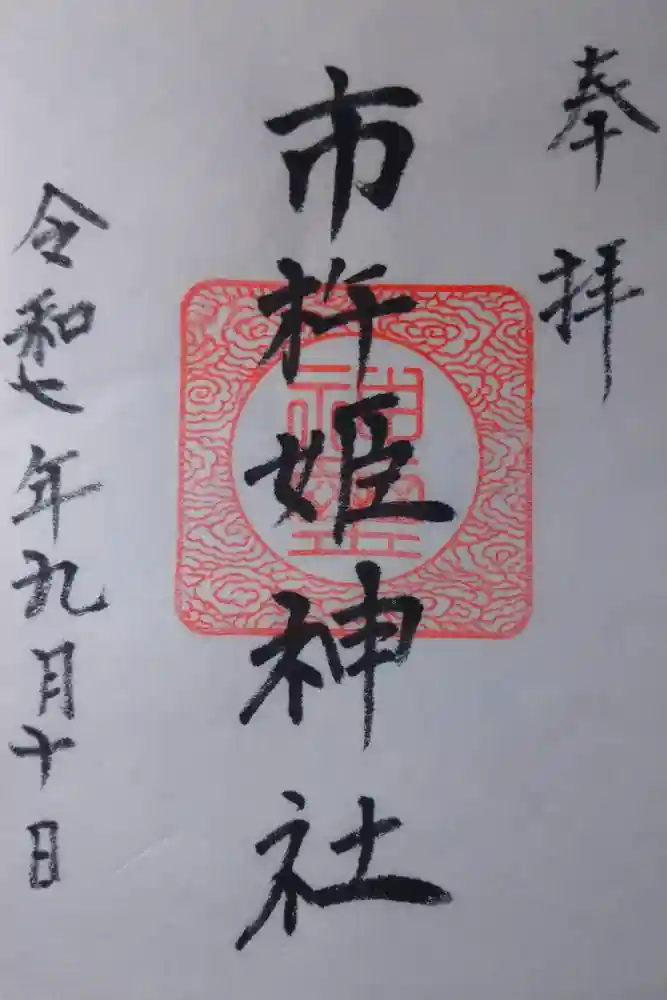 奉拝
市杵姫神社
神璽
令和七年九月十日